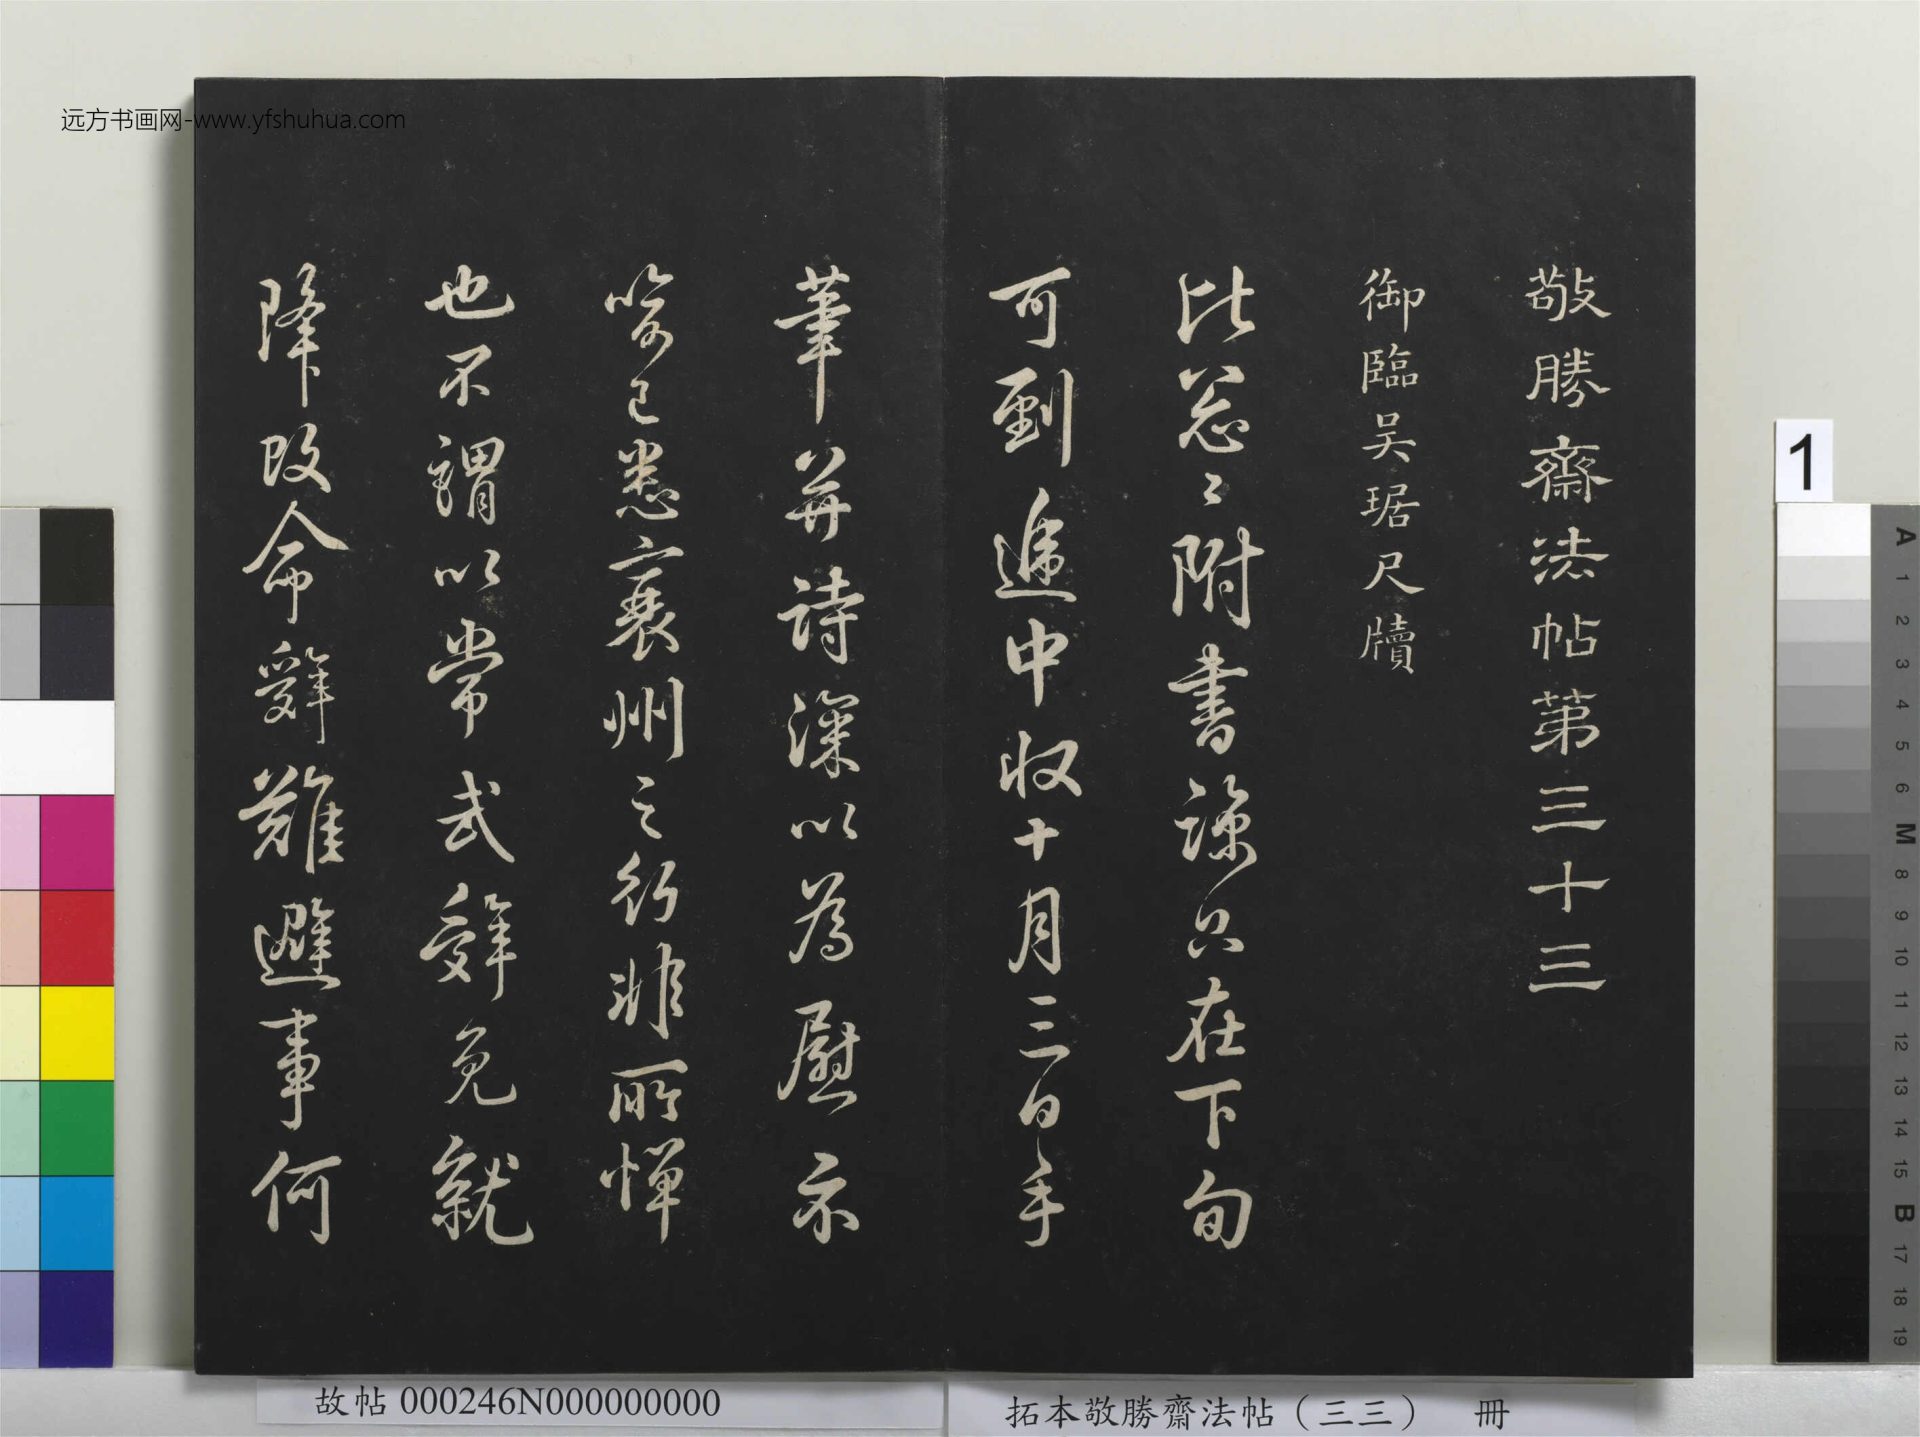 远方书画网-www.yfshuhua.com
敬勝齋法帖第三十三
御臨吴琚尺牘
比忩〻附書諒只在下旬
可到遞中收十月三日手
筆并詩深以為慰示
喻已悉襄州之行非所憚
也不謂以常式辭免就
降改命辭難避事何
1
A 1 2 3 4 5 6 M 8 9 10 11 12 13 14 15 B 17 18 19
故帖 000246N000000000
拓本敬勝齋法帖（三三） 冊